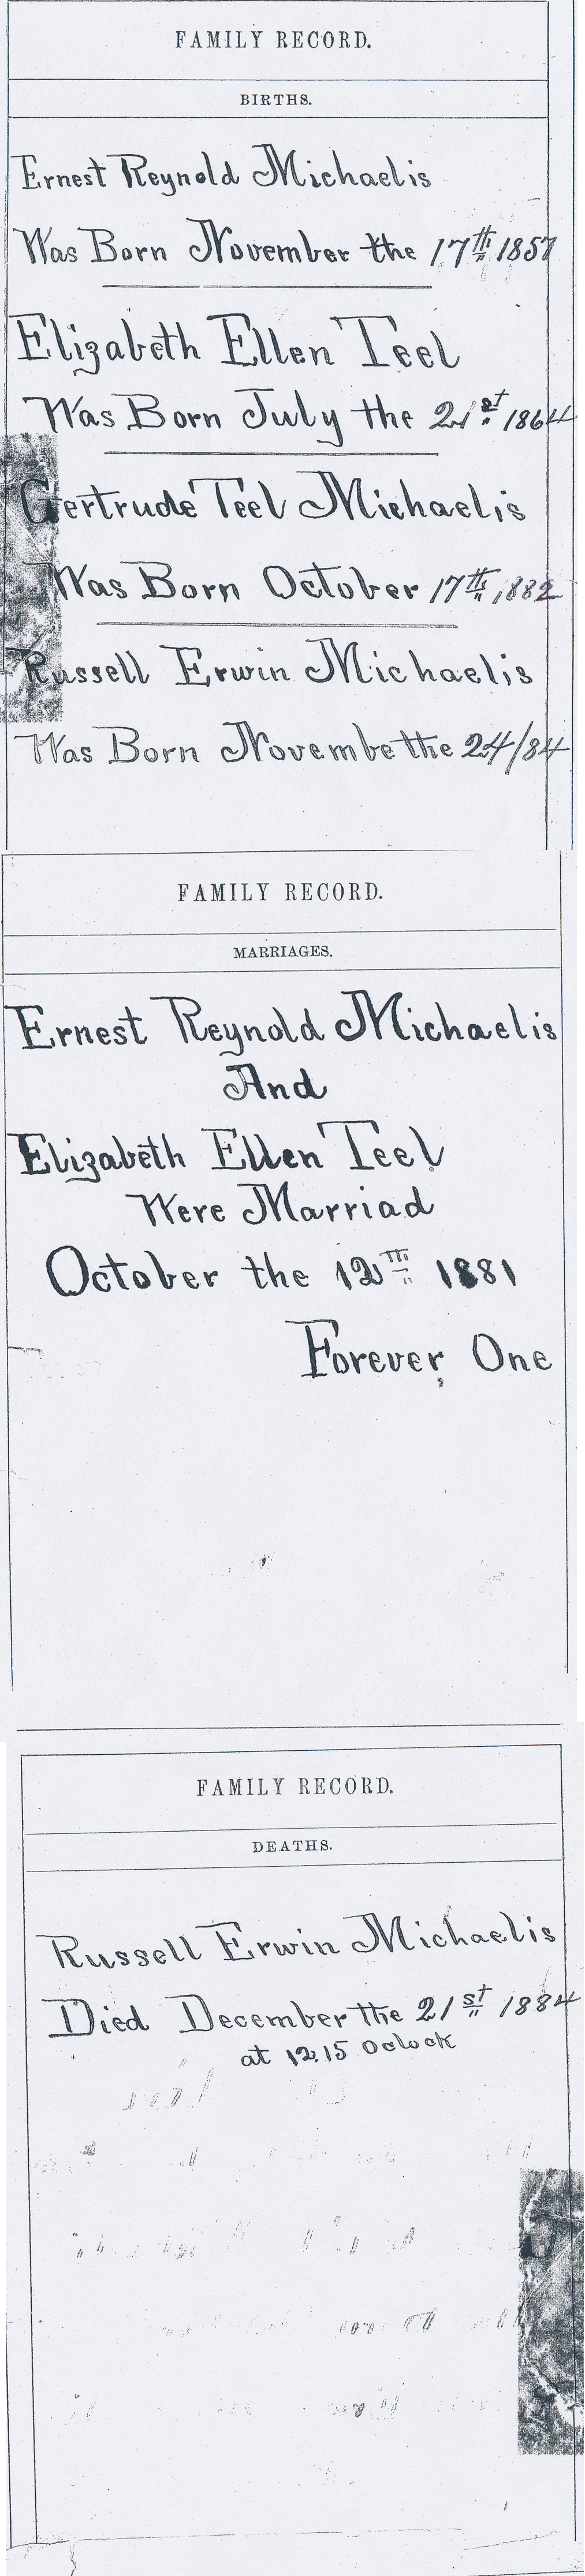 FAMILY RECORD.
BIRTHS.
Ernest Reynold Michaelis
Was Born November the 17th 1857
Elizabeth Ellen Teel
Was Born July the 21st 1864
Gertrude Teel Michaelis
Was Born October 17th, 1882
Russell Erwin Michaelis
Was Born Novembe the 24/84
FAMILY RECORD.
MARRIAGES.
Ernest Reynold Michaelis
And
Elizabeth Ellen Teel
Were Marriad
October the 12th 1881
Forever One
FAMILY RECORD.
DEATHS.
Russell Erwin Michaelis
Died December the 21st 1884
at 12.15 Oclock